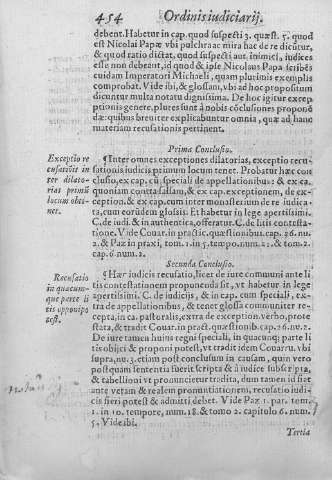 454 Ordinis iudiciarij.
debent. Habetur in cap. quod suspecti 3. quæst. 5. quod
est Nicolai Papæ vbi pulchra ac mira hac de re dicitur,
& quod ratio dictat, quod suspecti aut inimici, iudices
esse non debeant, id quod & ipse Nicolaus Papa scribēs
cuidam Imperatori Michaeli, quam plurimis exemplis
comprobat. Vide ibi, & glossani, vbi ad hoc propositum
dicuntur multa notatu dignissima. De hoc igitur excep
ptionis genere, plures sunt à nobis cōclusiones propond
dæ: quibus breuiter explicabuntur omnia, quæ ad hanc
materiam recusationis pertinent.
Prima Conclusio.
Exceptio re
cusationis in
ter dilato-
rias primū
locum obti-
net.
¶Inter omnes exceptiones dilatorias, exceptio recu-
sationis iudicis primum locum tenet. Probatur hæc con
clusio, ex cap. cū speciali de appellationibus: & ex ca
quoniam contra falsam, & ex cap. exceptionem, de ex-
ception. & ex cap. cum inter monasterium de re iudica-
ta, cum eorūdem glossis. Et habetur in lege apertissimi.
C. de iudi. & in authentica, offeratur. C. de litis contesta-
tione. Vide Couar. in practic. quæstionibus. cap. 26. nu.
2. & Paz in praxi, tom. 1. in 5. tempo. num. 21. & tom. 2.
cap. 6. num. 2.
Secunda Conclusio.
Recusatio
in quacum-
que parte li
tis opponi po
test.
¶Hæc iudicis recusatio, licet de iure communi ante li
tis contestationem proponenda sit, vt habetur in lege
apertissimi. C. de iudicijs, & in cap. cum speciali, ex-
tra de appellationibus, & tenet glossa communiter re-
cepta, in ca. pastoralis, extra de exception. verbo, prote
stata, & tradit Couar. in pract. quæstionib. cap. 26. nu. 2.
De iure tamen huius regni speciali, in quacunq; parte li
tis obijci & proponi potest, vt tradit idem Couarru. vbi
supra, nu. 3. etiam post conclusum in causam, quin vero
postquam sententia fuerit scripta & à iudice subscripta,
& tabellioni vt pronuncietur tradita, dum tamen id fiat
ante vetam & realem pronuntiationem, recusatio iudi-
cis fieri potest & admitti debet. Vide Paz 1. par. tom.
1. in 10. tempore, num. 18. & tomo 2. capitulo 6. num.
5. Vide ibi.
Tertia